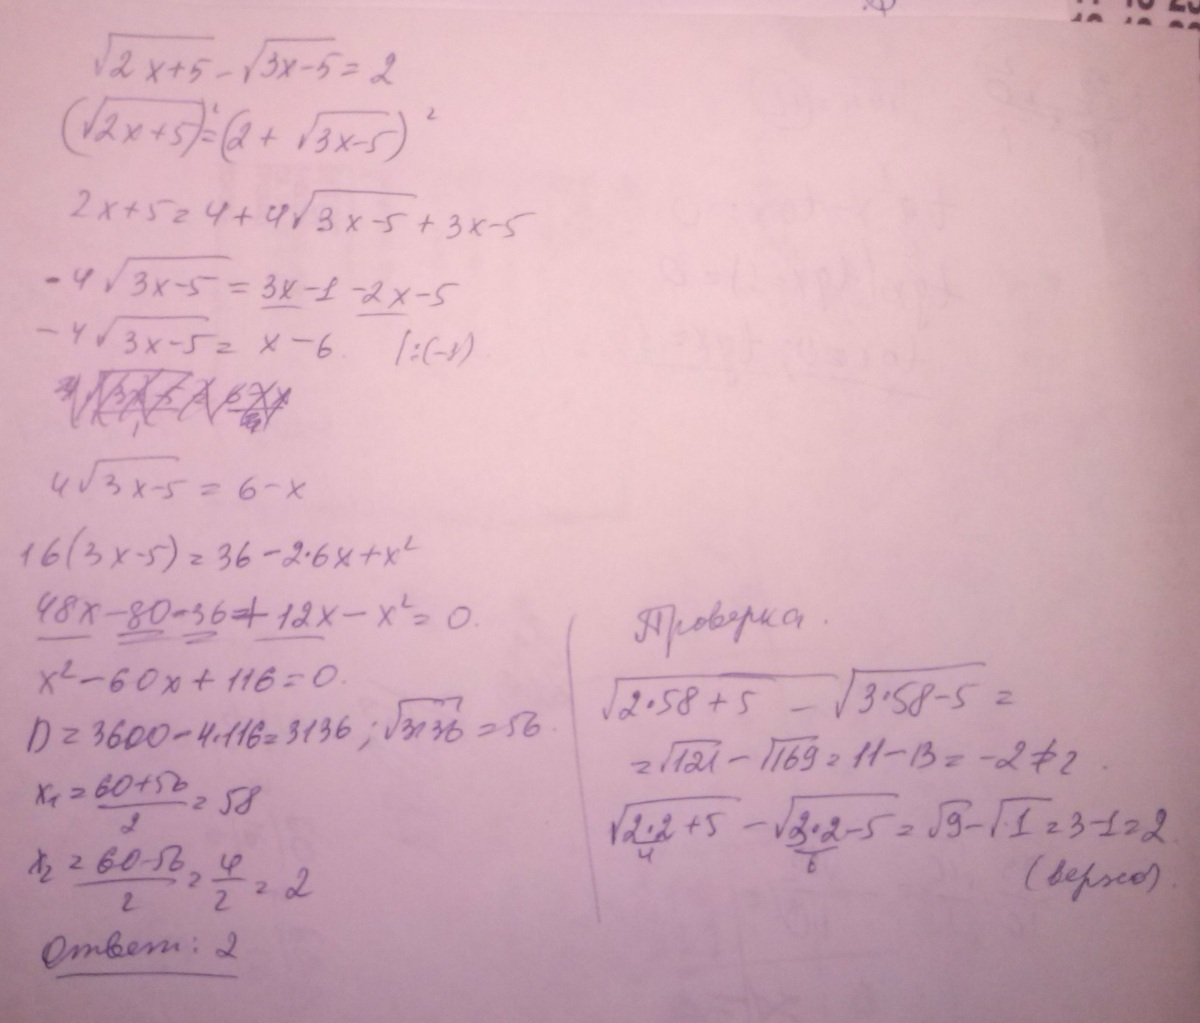 √2x+5 - √3x-5 = 2
(√2x+5)² = (2 + √3x-5)²
2x+5 = 4 + 4√3x-5 + 3x-5
-4√3x-5 = 3x-1 -2x-5
-4√3x-5 = x-6. |:(-1)
4√3x-5 = 6-x
16(3x-5) = 36 - 2·6x + x²
48x - 80 - 36 + 12x - x² = 0.
x² - 60x + 116 = 0.
D = 3600 - 4·116 = 3136; √3136 = 56.
x₁ = 60+56/2 = 58
x₂ = 60-56/2 = 4/2 = 2
Ответ: 2
Проверка.
√2·58+5 - √3·58-5 =
= √121 - √169 = 11-13 = -2 ≠ 2.
√2·2+5 - √3·2-5 = √9 - √1 = 3-1 = 2
4 6
(верно).